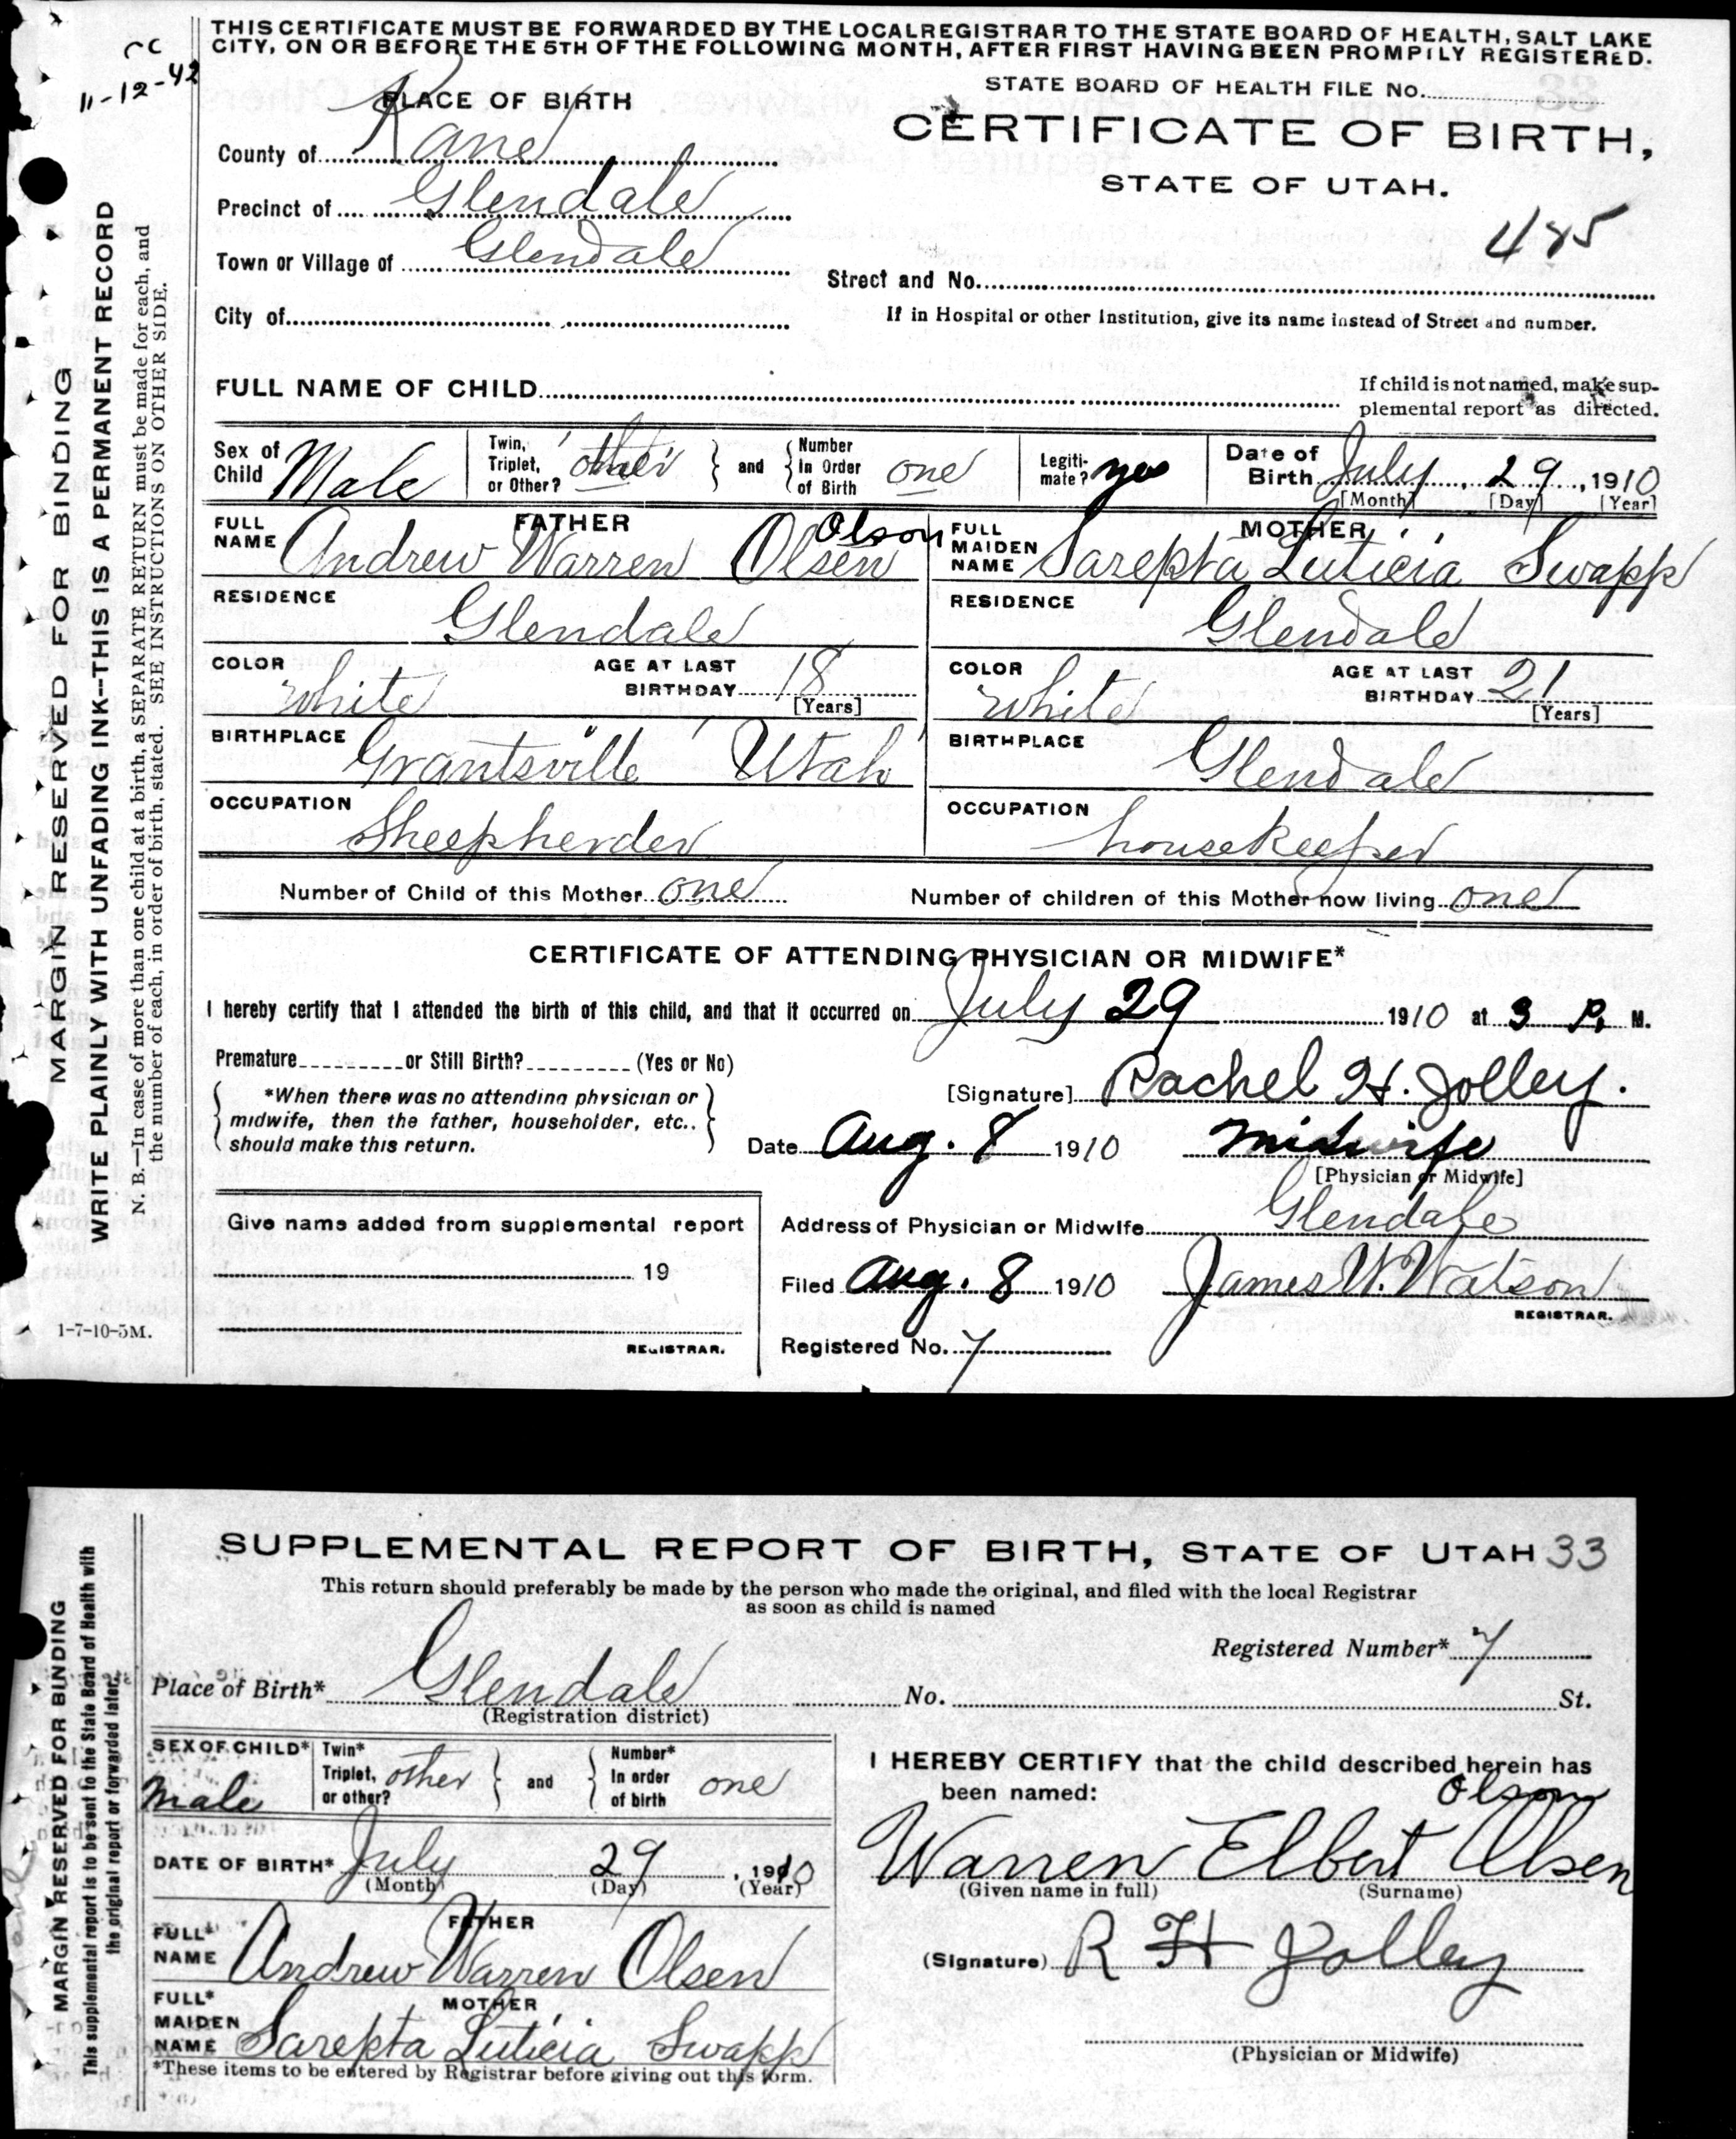 THIS CERTIFICATE MUST BE FORWARDED BY THE LOCAL REGISTRAR TO THE STATE BOARD OF HEALTH, SALT LAKE
CITY, ON OR BEFORE THE 5TH OF THE FOLLOWING MONTH, AFTER FIRST HAVING BEEN PROMPTLY REGISTERED.
cc
11-12-42
STATE BOARD OF HEALTH FILE No.
PLACE OF BIRTH
CERTIFICATE OF BIRTH,
STATE OF UTAH.
County of Kane
Precinct of Glendale
485
Town or Village of Glendale
Street and No.
City of
If in Hospital or other Institution, give its name instead of Street and number.
FULL NAME OF CHILD
If child is not named, make sup-
plemental report as directed.
Sex of Child Male
Twin, Triplet, or Other? other and Number In Order of Birth one
Legiti-mate? yes
Date of Birth July 29, 1910
[Month] [Day] [Year]
FATHER
FULL NAME Andrew Warren Olsen Olson
MOTHER
FULL MAIDEN NAME Sarepta Luticia Swapp
RESIDENCE Glendale
RESIDENCE Glendale
COLOR White AGE AT LAST BIRTHDAY 18 [Years]
COLOR White AGE AT LAST BIRTHDAY 21 [Years]
BIRTHPLACE Grantsville Utah
BIRTHPLACE Glendale
OCCUPATION Sheepherder
OCCUPATION housekeeper
Number of Child of this Mother one Number of children of this Mother now living one
CERTIFICATE OF ATTENDING PHYSICIAN OR MIDWIFE*
I hereby certify that I attended the birth of this child, and that it occurred on July 29 1910 at 3 P. M.
Premature or Still Birth? (Yes or No)
*When there was no attending physician or
midwife, then the father, householder, etc.,
should make this return.
[Signature] Rachel H. Jolley.
Date Aug. 8 1910 Midwife
[Physician or Midwife]
Give name added from supplemental report
19
REGISTRAR.
Address of Physician or Midwife Glendale
Filed Aug. 8 1910 James W. Watson
REGISTRAR.
Registered No. 7
MARGIN RESERVED FOR BINDING
WRITE PLAINLY WITH UNFADING INK--THIS IS A PERMANENT RECORD
N. B.—In case of more than one child at a birth, a SEPARATE RETURN must be made for each, and
the number of each, in order of birth, stated. SEE INSTRUCTIONS ON OTHER SIDE.
1-7-10-5M.
SUPPLEMENTAL REPORT OF BIRTH, STATE OF UTAH 33
This return should preferably be made by the person who made the original, and filed with the local Registrar
as soon as child is named
Registered Number* 7
Place of Birth* Glendale No. St.
(Registration district)
SEX OF CHILD* Male
Twin* Triplet, or other? other and Number* In order of birth one
DATE OF BIRTH* July 29, 1910
(Month) (Day) (Year)
FATHER
FULL* NAME Andrew Warren Olsen
MOTHER
FULL* MAIDEN NAME Sarepta Luticia Swapp
*These items to be entered by Registrar before giving out this form.
I HEREBY CERTIFY that the child described herein has
been named:
Olson
Warren Elbert Olsen
(Given name in full) (Surname)
(Signature) R H Jolley
(Physician or Midwife)
MARGIN RESERVED FOR BINDING
This supplemental report is to be sent to the State Board of Health with
the original report or forwarded later.